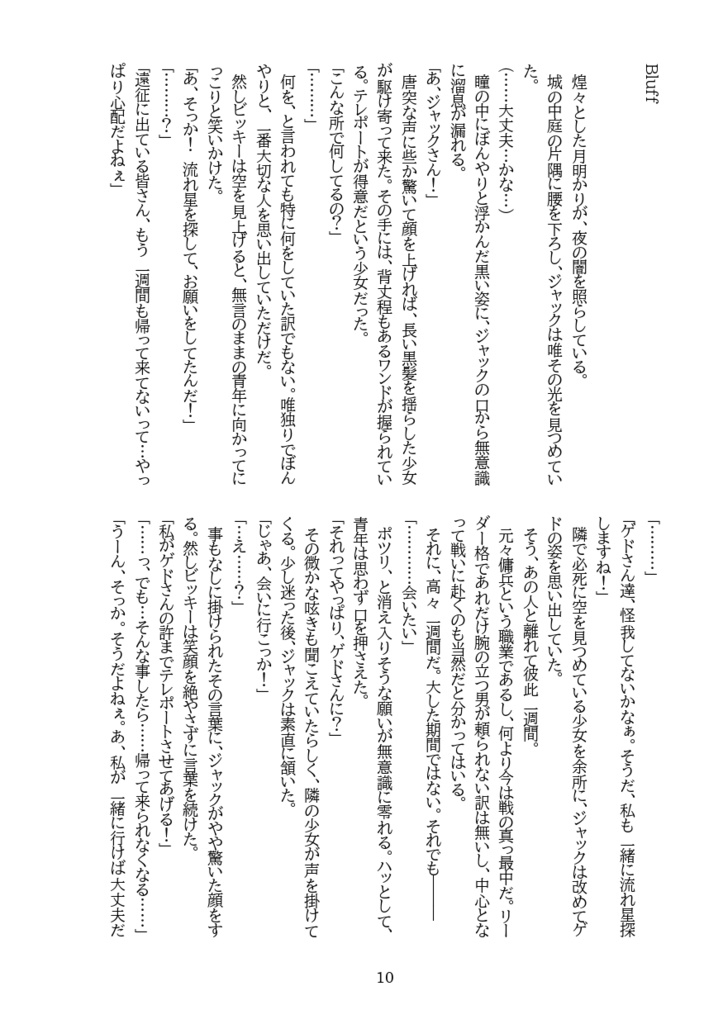 Bluff
煌々とした月明かりが、夜の闇を照らしている。
城の中庭の片隅に腰を下ろし、ジャックは唯その光を見つめてい
た。
(……大丈夫…かな…)
瞳の中にぼんやりと浮かんだ黒い姿に、ジャックの口から無意識
に溜息が漏れる。
「あ、ジャックさん！」
唐突な声に些か驚いて顔を上げれば、長い黒髪を揺らした少女
が駆け寄って来た。その手には、背丈程もあるワンドが握られてい
る。テレポートが得意だという少女だった。
「こんな所で何してるの？」
「………」
何を、と言われても特に何をしていた訳でもない。唯独りでぼん
やりと、一番大切な人を思い出していただけだ。
然しビッキーは空を見上げると、無言のままの青年に向かってに
っこりと笑いかけた。
「あ、そっか！　流れ星を探して、お願いをしてたんだ！」
「………？」
「遠征に出ている皆さん、もう一週間も帰って来てないって…やっ
ぱり心配だよねぇ」
「………」
「ゲドさん達、怪我してないかなぁ。そうだ、私も一緒に流れ星探
しますね！」
隣で必死に空を見つめている少女を余所に、ジャックは改めてゲ
ドの姿を思い出していた。
そう、あの人と離れて彼此一週間。
元々傭兵という職業であるし、何より今は戦の真っ最中だ。リー
ダー格であれだけ腕の立つ男が頼られない訳は無いし、中心とな
って戦いに赴くのも当然だと分かってはいる。
それに、高々一週間だ。大した期間ではない。それでも―――
「…………会いたい」
ポツリ、と消え入りそうな願いが無意識に零れる。ハッとして、
青年は思わず口を押さえた。
「それってやっぱり、ゲドさんに？」
その微かな呟きも聞こえていたらしく、隣の少女が声を掛けて
くる。少し迷った後、ジャックは素直に頷いた。
「じゃあ、会いに行こっか！」
「…え……？」
事もなしに掛けられたその言葉に、ジャックがやや驚いた顔をす
る。然しビッキーは笑顔を絶やさずに言葉を続けた。
「私がゲドさんの許までテレポートさせてあげる！」
「……っ、でも…そんな事したら……帰って来られなくなる……」
「うーん、そっか。そうだよねぇ。あ、私が一緒に行けば大丈夫だ
10